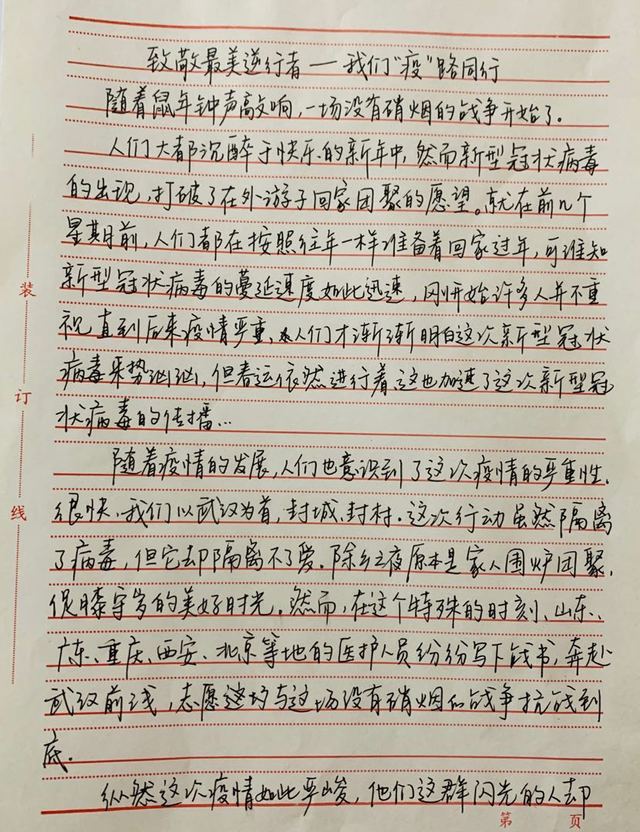 致敬最美逆行者—我们“疫”路同行
随着鼠年钟声敲响,一场没有硝烟的战争开始了。
人们大都沉醉于快乐的新年中,然而新型冠状病毒
的出现,打破了在外游子回家团聚的愿望。就在前几个
星期前,人们都在按照往年一样准备着回家过年,可谁知
新型冠状病毒的蔓延速度如此迅速,刚开始许多人并不重
视直到后来疫情严重、人们才渐渐明白这次新型冠状
病毒来势汹汹,但春运依然进行着,这也加速了这次新型冠
状病毒的传播...
随着疫情的发展,人们也意识到了这次疫情的严重性.
很快,我们以武汉为首,封城,封村.这次行动虽然隔离
了病毒,但它却隔离不了爱.除夕夜原本是家人围炉团聚,
促膝守岁的美好时光.然而,在这个特殊的时刻、山东、
广东、重庆、西安、北京等地的医护人员纷纷写下战书,奔赴
武汉前线,志愿与这场没有硝烟的战争抗战到
底.
纵然这次疫情如此严峻,他们这群闪光的人却
装
订
线
第 页